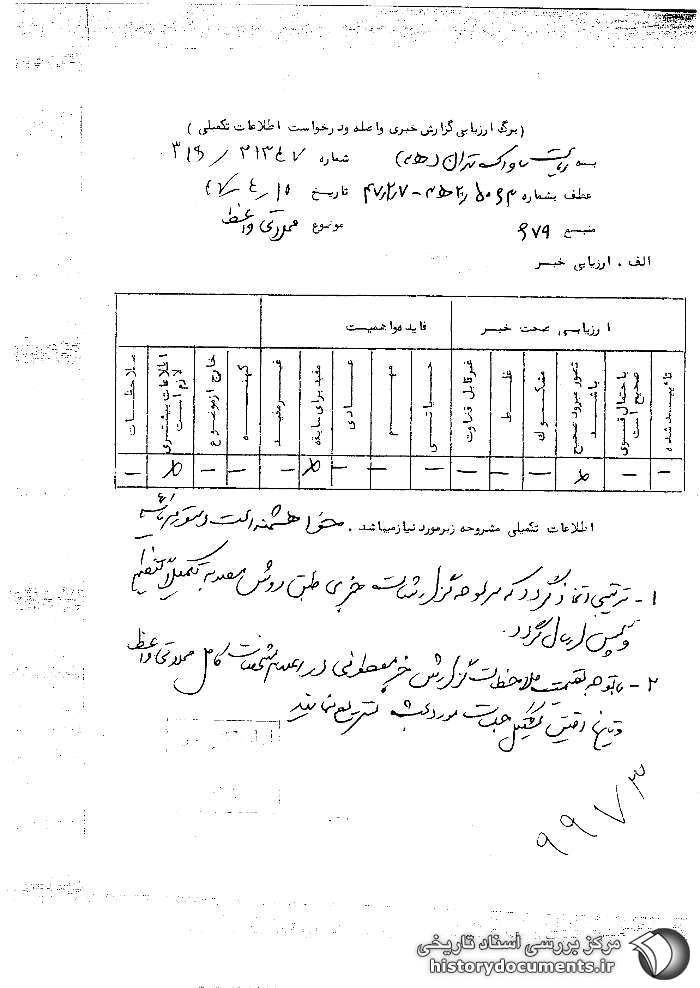 (برگ ارزیابی گزارش خبری واصله و درخواست اطلاعات تکمیلی)
به ریاست ساواک تهران (۲۰ﻫ) شماره ۳۱۶/۲۱۳۵۷
عطف بشماره تاریخ ۴۷/۴/۱۵
منبع ۶۷۹ موضوع محلاتی واعظ
الف. ارزیابی خبر
ارزیابی صحت خبر فایده و اهمیت
تأیید شده باحتمال قوی صحیح است تصور میرود صحیح باشد مشکوک غلط غیر قابل قضاوت حیاتی مهم عادی مفید برای سابقه غیر مفید کهنه خارج از موضوع اطلاعات بیشتری لازم است ملاحظات
– – × – – – – – – × – – – × –
اطلاعات تکمیلی مشروحه زیر مورد نیاز میباشد. خواهشمند است دستور فرمائید
۱- ترتیبی اتخاذ گردد که من بعد گزارشات خبری طبق روش معموله تکمیل و تنظیم
و سپس ارسال گردد.
۲- با توجه بقسمت ملاحظات گزارش خبر معطوفی در اعلام مشخصات کامل محلاتی واعظ
و تاریخ دقیق تشکیل جلسات مورد بحث تسریع نمایند
۹۹۷۳
مرکز بررسی اسناد تاریخی
historydocuments.ir